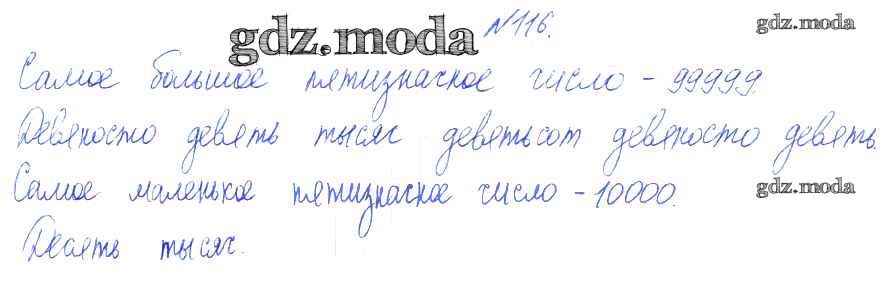 №116.
gdz.moda
gdz.moda
Самое большое пятизначное число – 99999.
Девяносто девять тысяч девятьсот девяносто девять.
Самое маленькое пятизначное число – 10000.
gdz.moda
Десять тысяч.
gdz.moda